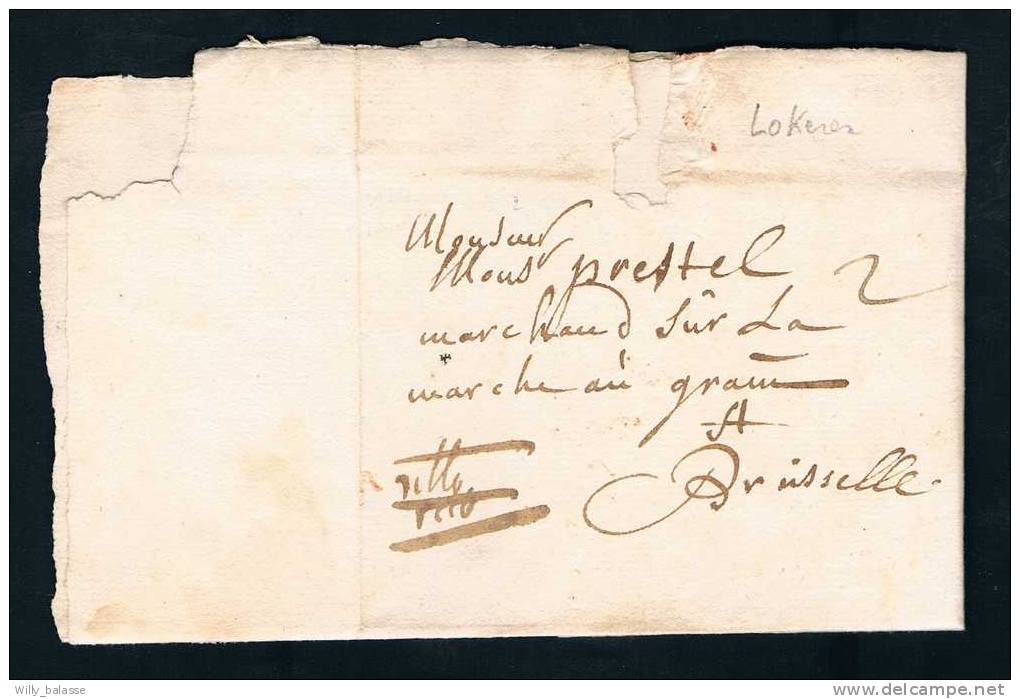 Lokeren
Monsieur
Mons prestel
2
marchand sûr La
marche aú grain
A
Brüsselle
Willy_balasse
delcampe.net